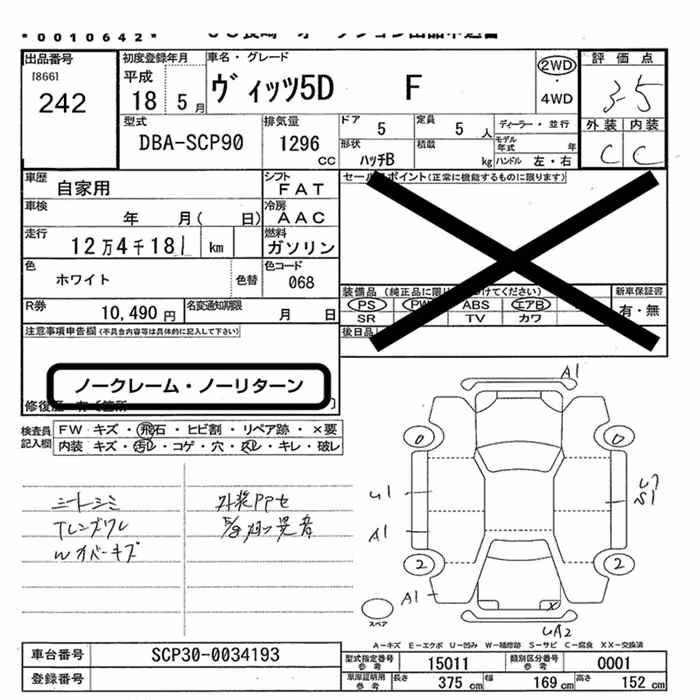 *0010642*
出品番号
[866]
242
初度登録年月
平成
18 5月
車名・グレード
ヴィッツ5D F
2WD
4WD
評価点
3-5
型式
DBA-SCP90
排気量
1296
CC
ドア 5
定員 5 人
ディーラー・並行
モデル年式 年
形状 ハッチB
積載 kg
ハンドル 左・右
外装 内装
C C
車歴
自家用
シフト
FAT
車検 年 月( 日)
冷房
AAC
走行
12万4千181 km
燃料
ガソリン
色
ホワイト
色替
色コード
068
R券 10,490円
名変通知期限 月 日
セールスポイント(正常に機能するものに限ります)
装備品
PS PW ABS エアB
SR TV カワ
新車保証書
有・無
後日品
注意事項申告欄(不具合内容等は具体的に記入して下さい)
ノークレーム・ノーリターン
検査員記入欄
FW キズ・飛石・ヒビ割・リペア跡・×要
内装 キズ・汚レ・コゲ・穴・スレ・キレ・破レ
シートシミ
Tレンズワレ
Wカバーキズ
A1
0 0
U1
S1
A1
2 2
A1
X
UA2
スペア
A-キズ E-エクボ U-凹み W-補修跡 S-サビ C-腐食 XX-交換済
車台番号 SCP30-0034193
登録番号
型式指定番号 参考 15011
類別区分番号 参考 0001
車庫証明用 参考 長さ 375 cm 幅 169 cm 高さ 152 cm